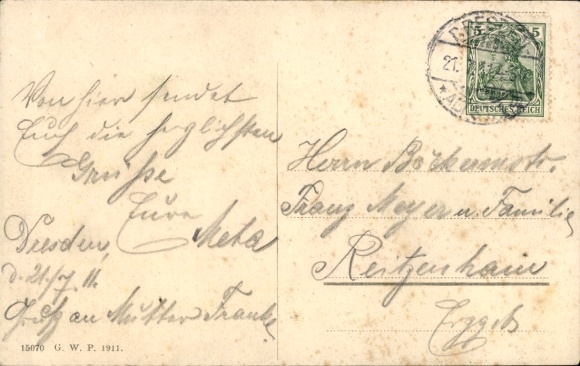 Von hier sendet
Euch die herzlichsten
Grüße
Eure
Meta
Dresden,
d. 21./7. 11.
Gruß an Mutter Franke
15070 G. W. P. 1911.
DRESDEN
21.
5
DEUTSCHES REICH
Herrn Bäckermstr.
Franz Meyer u. Familie
Reitzenhain
Erzgeb